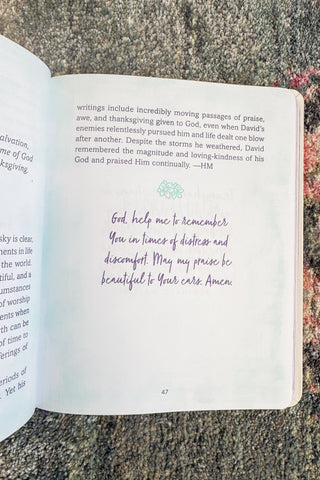 salvation,
me of God
nksgiving.
sky is clear,
ments in life
the world.
tiful, and a
cumstances
of worship
ents when
rth can be
of time to
fferings of
periods of
. Yet his
writings include incredibly moving passages of praise,
awe, and thanksgiving given to God, even when David's
enemies relentlessly pursued him and life dealt one blow
after another. Despite the storms he weathered, David
remembered the magnitude and loving-kindness of his
God and praised Him continually. —HM
God, help me to remember
You in times of distress and
discomfort. May my praise be
beautiful to Your ears. Amen.
47